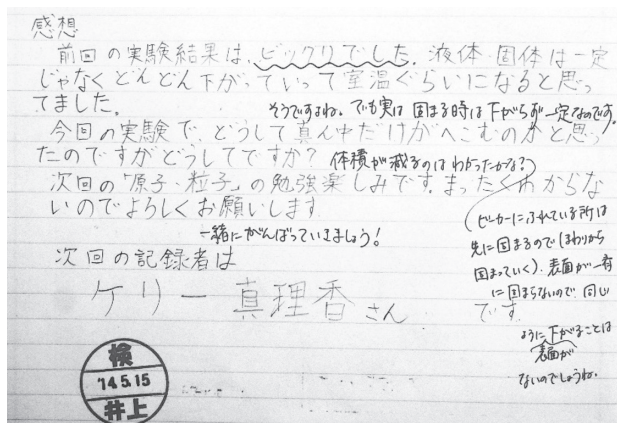 感想
前回の実験結果は、ビックリでした。液体・固体は一定
じゃなくどんどん下がっていって室温ぐらいになると思っ
てました。
そうですよね。でも実は固まる時は下がらず一定なのです。
今回の実験で、どうして真ん中だけがへこむのかと思っ
たのですがどうしてですか？
体積が減るのはわかったかな？
次回の「原子・粒子」の勉強楽しみです。まったくわからな
いのでよろしくお願いします。
一緒にがんばっていきましょう！
(ビーカーにふれている所は
先に固まるので(まわりから
固まっていく)、表面が一斉
に固まらないので、同じ
ように表面が下がることは
ないのでしょうね。
次回の記録者は
ケリー真理香さん
です。
検
'14.5.15
井上